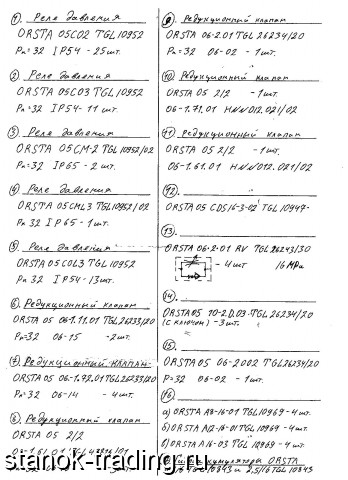 1. Реле давления
ORSTA 05CO2 TGL 10952
Pн=32 IP54 - 25 шт.
2. Реле давления
ORSTA 05CO3 TGL 10952
Pн=32 IP54 - 11 шт.
3 Реле давления
ORSTA 05CM-2 TGL 10952/02
Pн=32 IP65 - 2 шт.
4 Реле давления
ORSTA 05CML3 TGL 10952/02
Pн 32 IP65 - 1 шт.
5 Реле давления
ORSTA 05COL3 TGL 10952
Pн 32 IP54 - 13 шт.
6. Редукционный клапан
ORSTA 05 06-1.11.01 TGL 26233/20
Pн=32 06-15 - 2 шт.
7. Редукционный клапан
ORSTA 05 06-1.72.01 TGL 26233/20
Pн=32 06-14 - 4 шт.
8. Редукционный клапан
ORSTA 05 2/2
9. Редукционный клапан
ORSTA 06-2.01 TGL 26234/20
Pн=32 06-02 - 1 шт.
10 Редукционный клапан
ORSTA 05 2/2 - 1 шт
06-1.71.01 HNN012.021/02
11 Редукционный клапан
ORSTA 05 2/2 - 1 шт.
06-1.61.01 HNN012.021/02
12.
ORSTA 05 CDS16-3-02 TGL 10947-
13.
ORSTA 06-2-01 RV TGL 26243/30
- 4 шт 16 MPa
14.
ORSTA 05 10-2.D.03 TGL 26234/20
(с ключом) - 3 шт.
15.
ORSTA 05 06-2002 TGL 26234/20
P=32 06-02 - 1 шт.
16
а) ORSTA A8-16-01 TGL 10969 - 4 шт.
б) ORSTA A2-16-01 TGL 10969 - 4 шт
в) ORSTA A16-03 TGL 10969 - 4 шт
ORSTA
TGL 10843
stanok-trading.ru